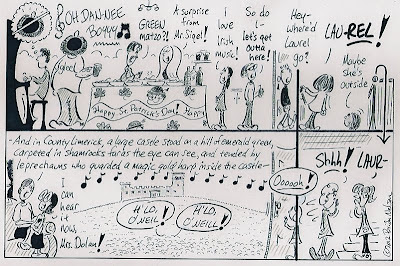 OH DAN-NEE
BOYYY
GREEN
matzo?!
A surprise
from
Mr. Sigel!
I
love
Irish
music!
So do
I-
let's get
outta
here!
Hey-
where'd
Laurel
go?
LAU-REL!
Maybe
she's
outside
Happy St. Patrick's Day! Happy
-And in County Limerick, a large castle stood on a hill of emerald green,
carpeted in shamrocks far as the eye can see, and tended by
leprechauns who guarded a magic gold harp inside the castle-
I
can
hear
it now,
Mrs. Dolan!
H'LO,
O'NEIL!
H'LO,
O'NEILL!
Ooooh!
Shhh!
LAUR-